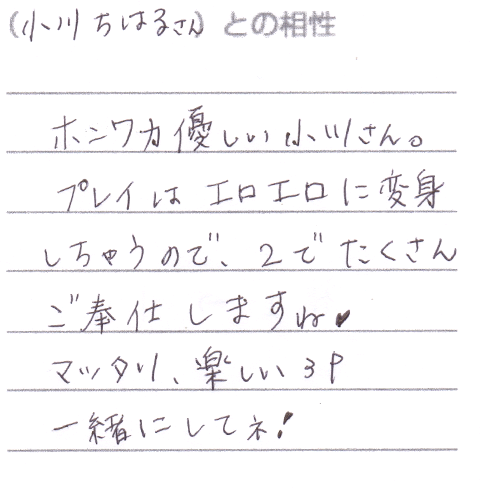 (小川ちはるさん) との相性
ホンワカ優しい小川さん。
プレイは エロエロに変身
しちゃうので、2でたくさん
ご奉仕しますね♥
マッタリ、楽しい3P
一緒にしてネ!